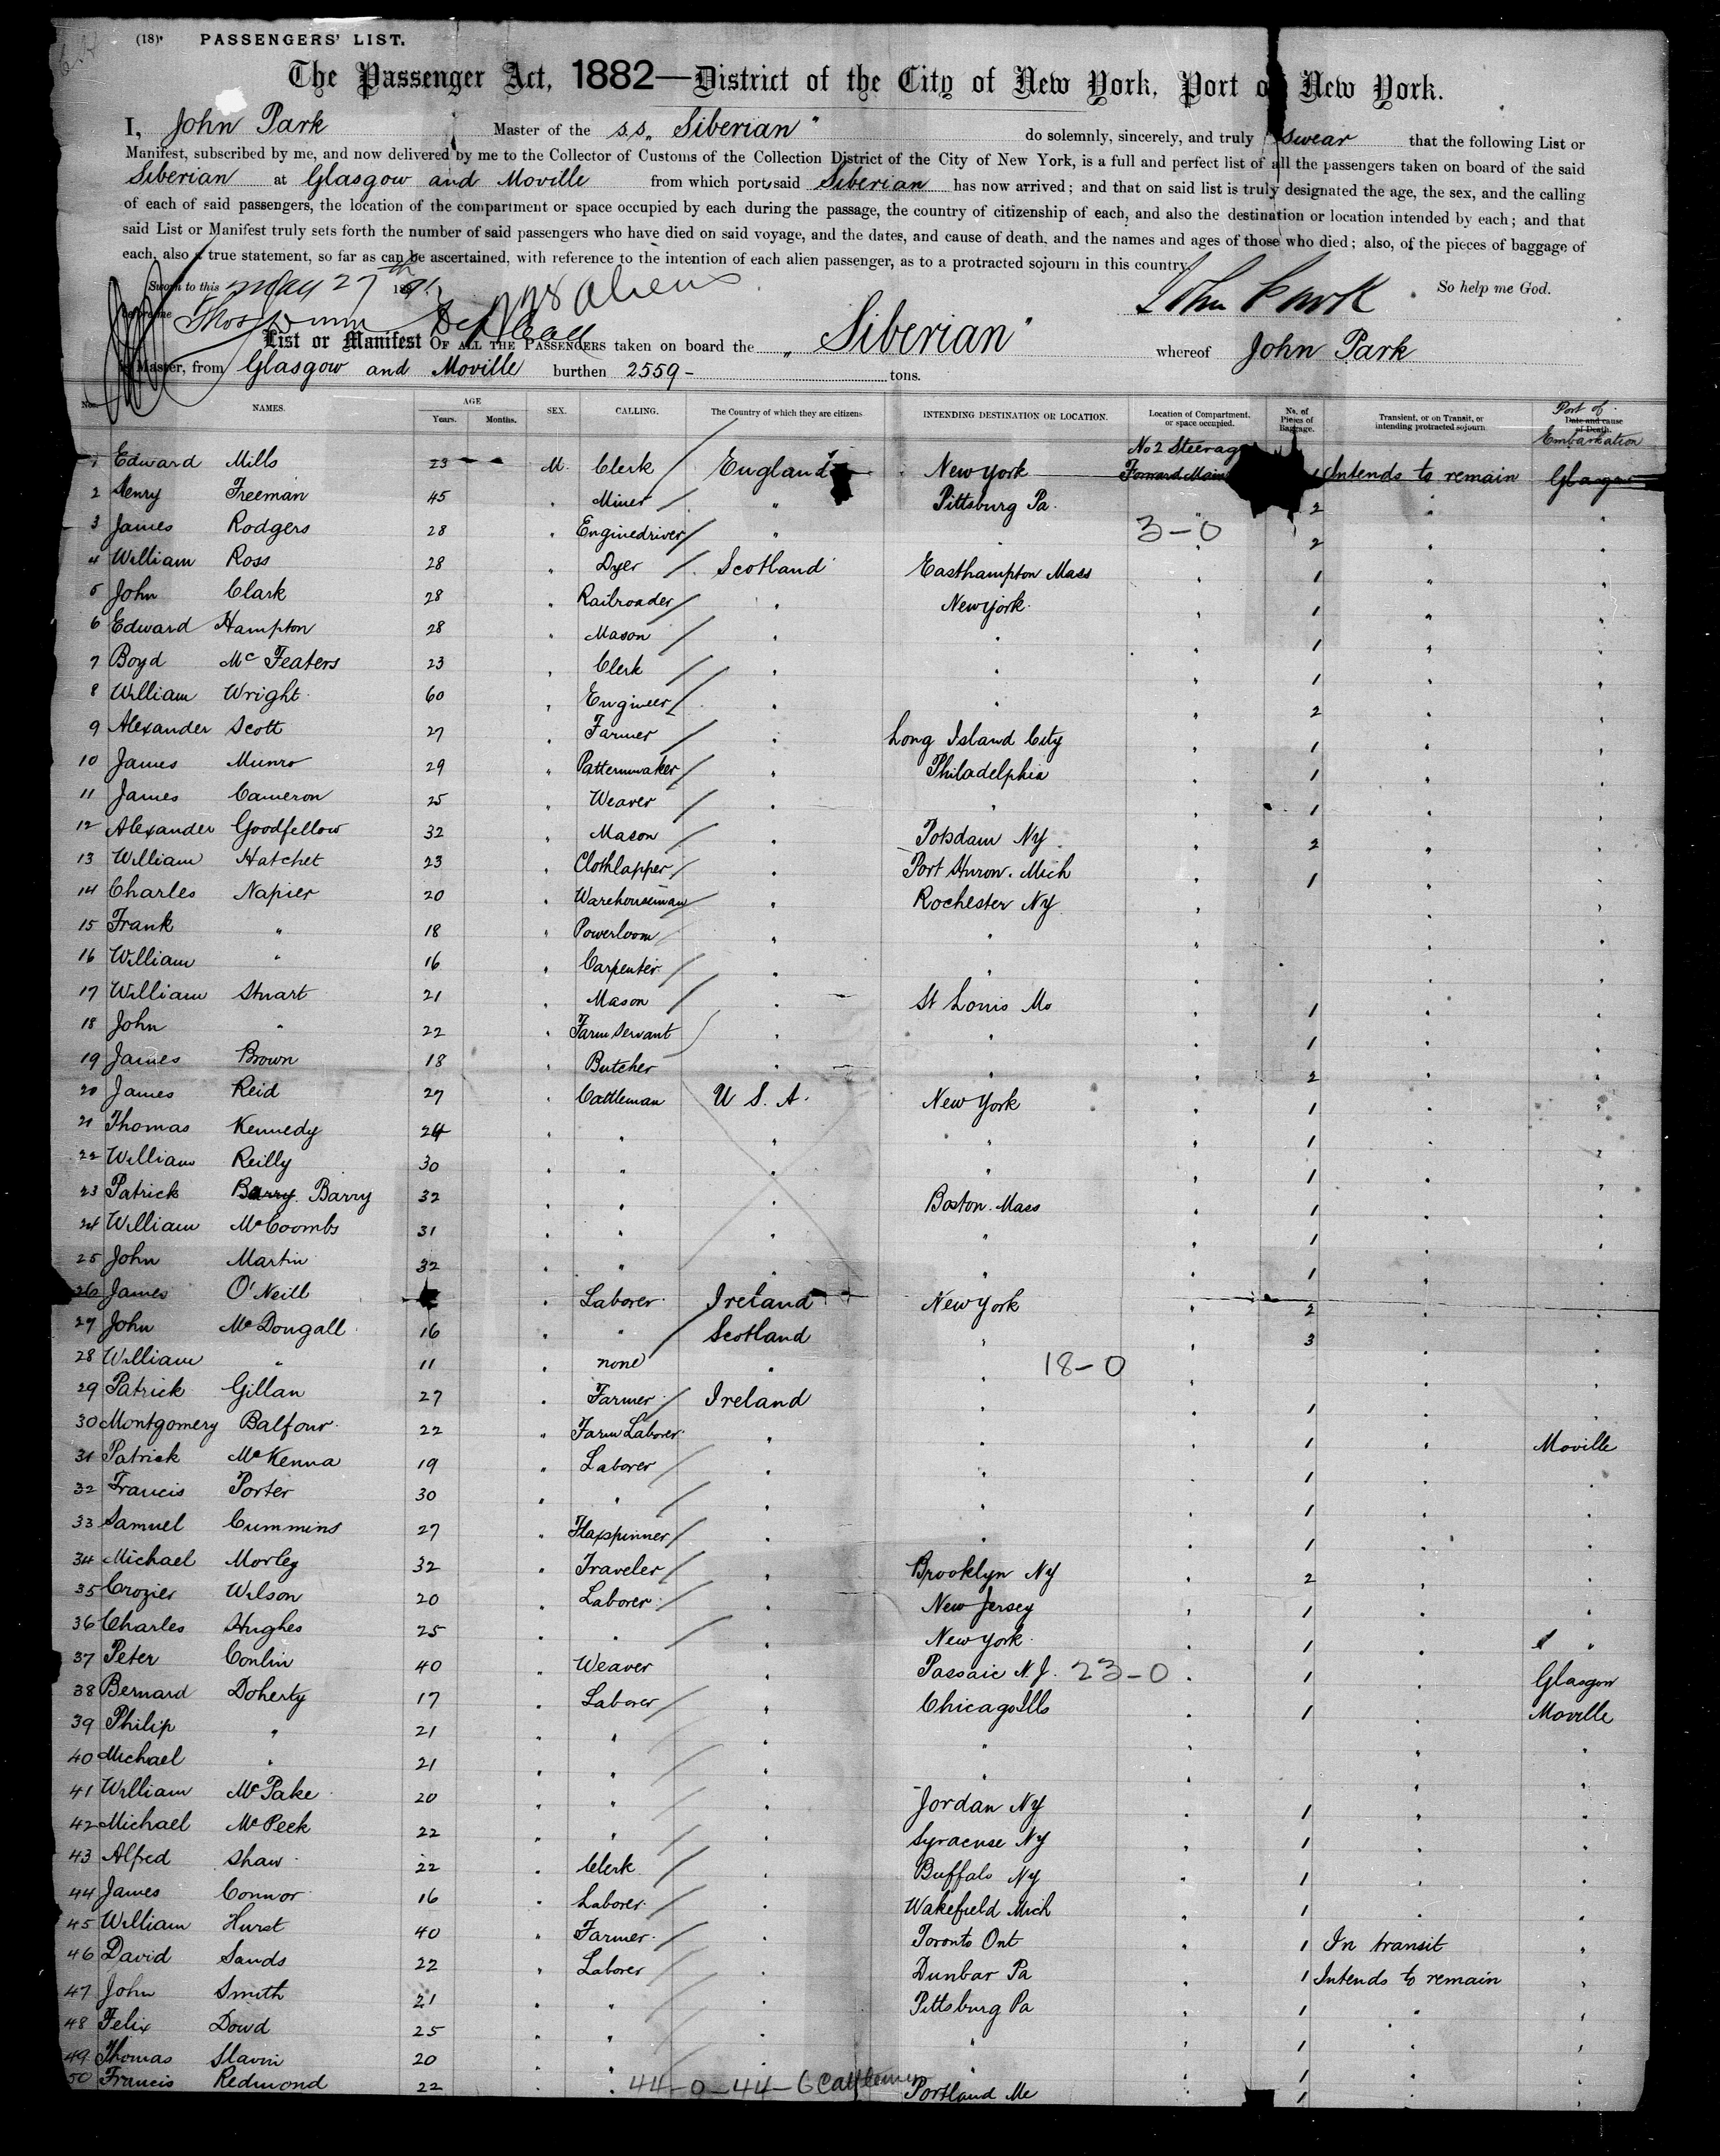 (18) PASSENGERS' LIST.
The Passenger Act, 1882—District of the City of New York, Port of New York.
I, John Park Master of the s.s. "Siberian" do solemnly, sincerely, and truly swear that the following List or
Manifest, subscribed by me, and now delivered by me to the Collector of Customs of the Collection District of the City of New York, is a full and perfect list of all the passengers taken on board of the said
Siberian at Glasgow and Moville from which port said Siberian has now arrived; and that on said list is truly designated the age, the sex, and the calling
of each of said passengers, the location of the compartment or space occupied by each during the passage, the country of citizenship of each, and also the destination or location intended by each; and that
said List or Manifest truly sets forth the number of said passengers who have died on said voyage, and the dates, and cause of death, and the names and ages of those who died; also, of the pieces of baggage of
each, also a true statement, so far as can be ascertained, with reference to the intention of each alien passenger, as to a protracted sojourn in this country.
Sworn to this May 27th 1891 John Park So help me God.
before me Thos Dunn Dep Coll
List or Manifest OF ALL THE PASSENGERS taken on board the "Siberian" whereof John Park
is Master, from Glasgow and Moville burthen 2559 - tons.
Nos. NAMES. AGE Years. Months. SEX. CALLING. The Country of which they are citizens. INTENDING DESTINATION OR LOCATION. Location of Compartment, or space occupied. No. of Pieces of Baggage. Transient, or on Transit, or intending protracted sojourn Date and cause of Death. Port of Embarkation
1 Edward Mills 23 M. Clerk England New York No 2 Steerage Forward Main 1 Intends to remain Glasgow
2 Henry Freeman 45 " Miner " Pittsburg Pa. " 2 " "
3 James Rodgers 28 " Enginedriver " " 3-0 " 2 " "
4 William Ross 28 " Dyer Scotland Easthampton Mass " 1 " "
5 John Clark 28 " Railroader " New York " 1 " "
6 Edward Hampton 28 " Mason " " " 1 " "
7 Boyd McFeaters 23 " Clerk " " " 1 " "
8 William Wright 60 " Engineer " " " 2 " "
9 Alexander Scott 27 " Farmer " Long Island City " 1 " "
10 James Munro 29 " Patternmaker " Philadelphia " 1 " "
11 James Cameron 25 " Weaver " " " 1 " "
12 Alexander Goodfellow 32 " Mason " Potsdam NY " 2 " "
13 William Hatchet 23 " Clothlapper " Port Huron. Mich " 1 " "
14 Charles Napier 20 " Warehouseman " Rochester NY " " "
15 Frank " 18 " Powerloom " " " " "
16 William " 16 " Carpenter " " " " "
17 William Stuart 21 " Mason " St Louis Mo " 1 " "
18 John " 22 " Farm Servant " " " 1 " "
19 James Brown 18 " Butcher " " " 2 " "
20 James Reid 27 " Cattleman U. S. A. New York " 1 " "
21 Thomas Kennedy 24 " " " " " 1 " "
22 William Reilly 30 " " " " " 1 " "
23 Patrick Barry Barry 32 " " " Boston. Mass " 1 " "
24 William McCoombs 31 " " " " " 1 " "
25 John Martin 32 " " " " " 1 " "
26 James O'Neill " Laborer Ireland New York " 2 " "
27 John McDougall 16 " " Scotland " " 3 " "
28 William " 11 " none " " 18-0 " " "
29 Patrick Gillan 27 " Farmer Ireland " " 1 " "
30 Montgomery Balfour 22 " Farm Laborer " " " 1 " Moville
31 Patrick McKenna 19 " Laborer " " " 1 " "
32 Francis Porter 30 " " " " " 1 " "
33 Samuel Cummins 27 " Flaxspinner " " " 1 " "
34 Michael Morley 32 " Traveler " Brooklyn NY " 2 " "
35 Crozier Wilson 20 " Laborer " New Jersey " 1 " "
36 Charles Hughes 25 " " " New York " 1 " "
37 Peter Conlin 40 " Weaver " Passaic N.J. 23-0 " 1 " Glasgow
38 Bernard Doherty 17 " Laborer " Chicago Ills " 1 " Moville
39 Philip " 21 " " " " " " "
40 Michael " 21 " " " " " " "
41 William McPake 20 " " " Jordan NY " 1 " "
42 Michael McPeek 22 " " " Syracuse NY " 1 " "
43 Alfred Shaw 22 " Clerk " Buffalo NY " 1 " "
44 James Connor 16 " Laborer " Wakefield Mich " 1 " "
45 William Hurst 40 " Farmer " Toronto Ont " 1 In transit "
46 David Sands 22 " Laborer " Dunbar Pa 1 Intends to remain "
47 John Smith 21 " " " Pittsburg Pa " 1 " "
48 Felix Dowd 25 " " " " " 1 " "
49 Thomas Slavin 20 " " " " " 1 " "
50 Francis Redmond 22 " " 44-0-44-6 Cattlemen Portland Me " 1 " "